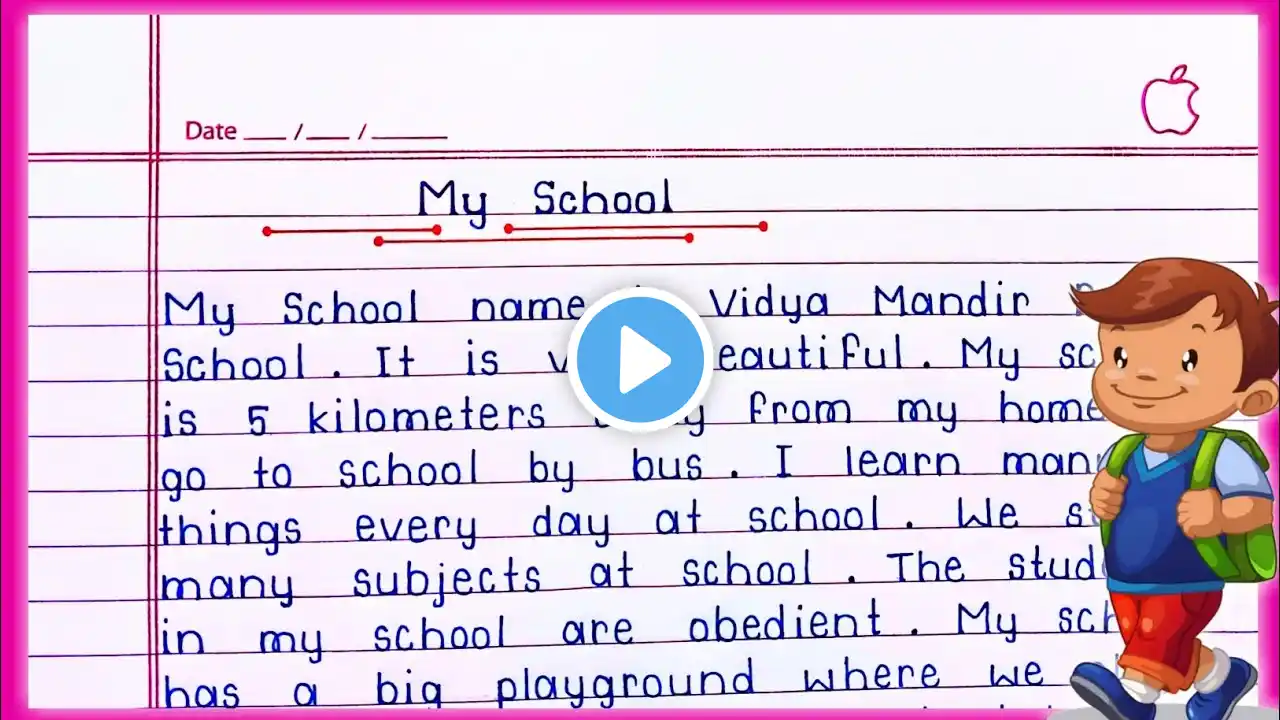 Date ___ /___ / _____
My School
My School name Vidya Mandir
School. It is My
is 5 kilometers from my home
go to school by bus. I learn
things every day at school. We
many subjects at school. The
in my school are obedient. My
has a big playground where we